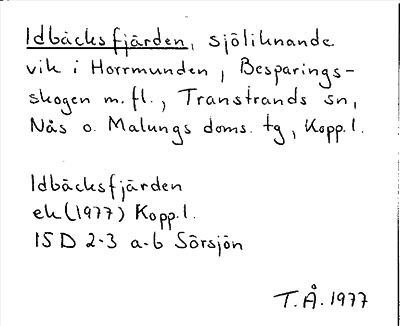 Idbäcksfjärden, sjöliknande
vik i Horrmunden, Besparings-
skogen m.fl., Transtrands sn,
Nås o. Malungs doms. tg, Kopp.l.
Idbäcksfjärden
ek (1977) Kopp.l.
15 D 2-3 a-b Sörsjön
T.Å. 1977